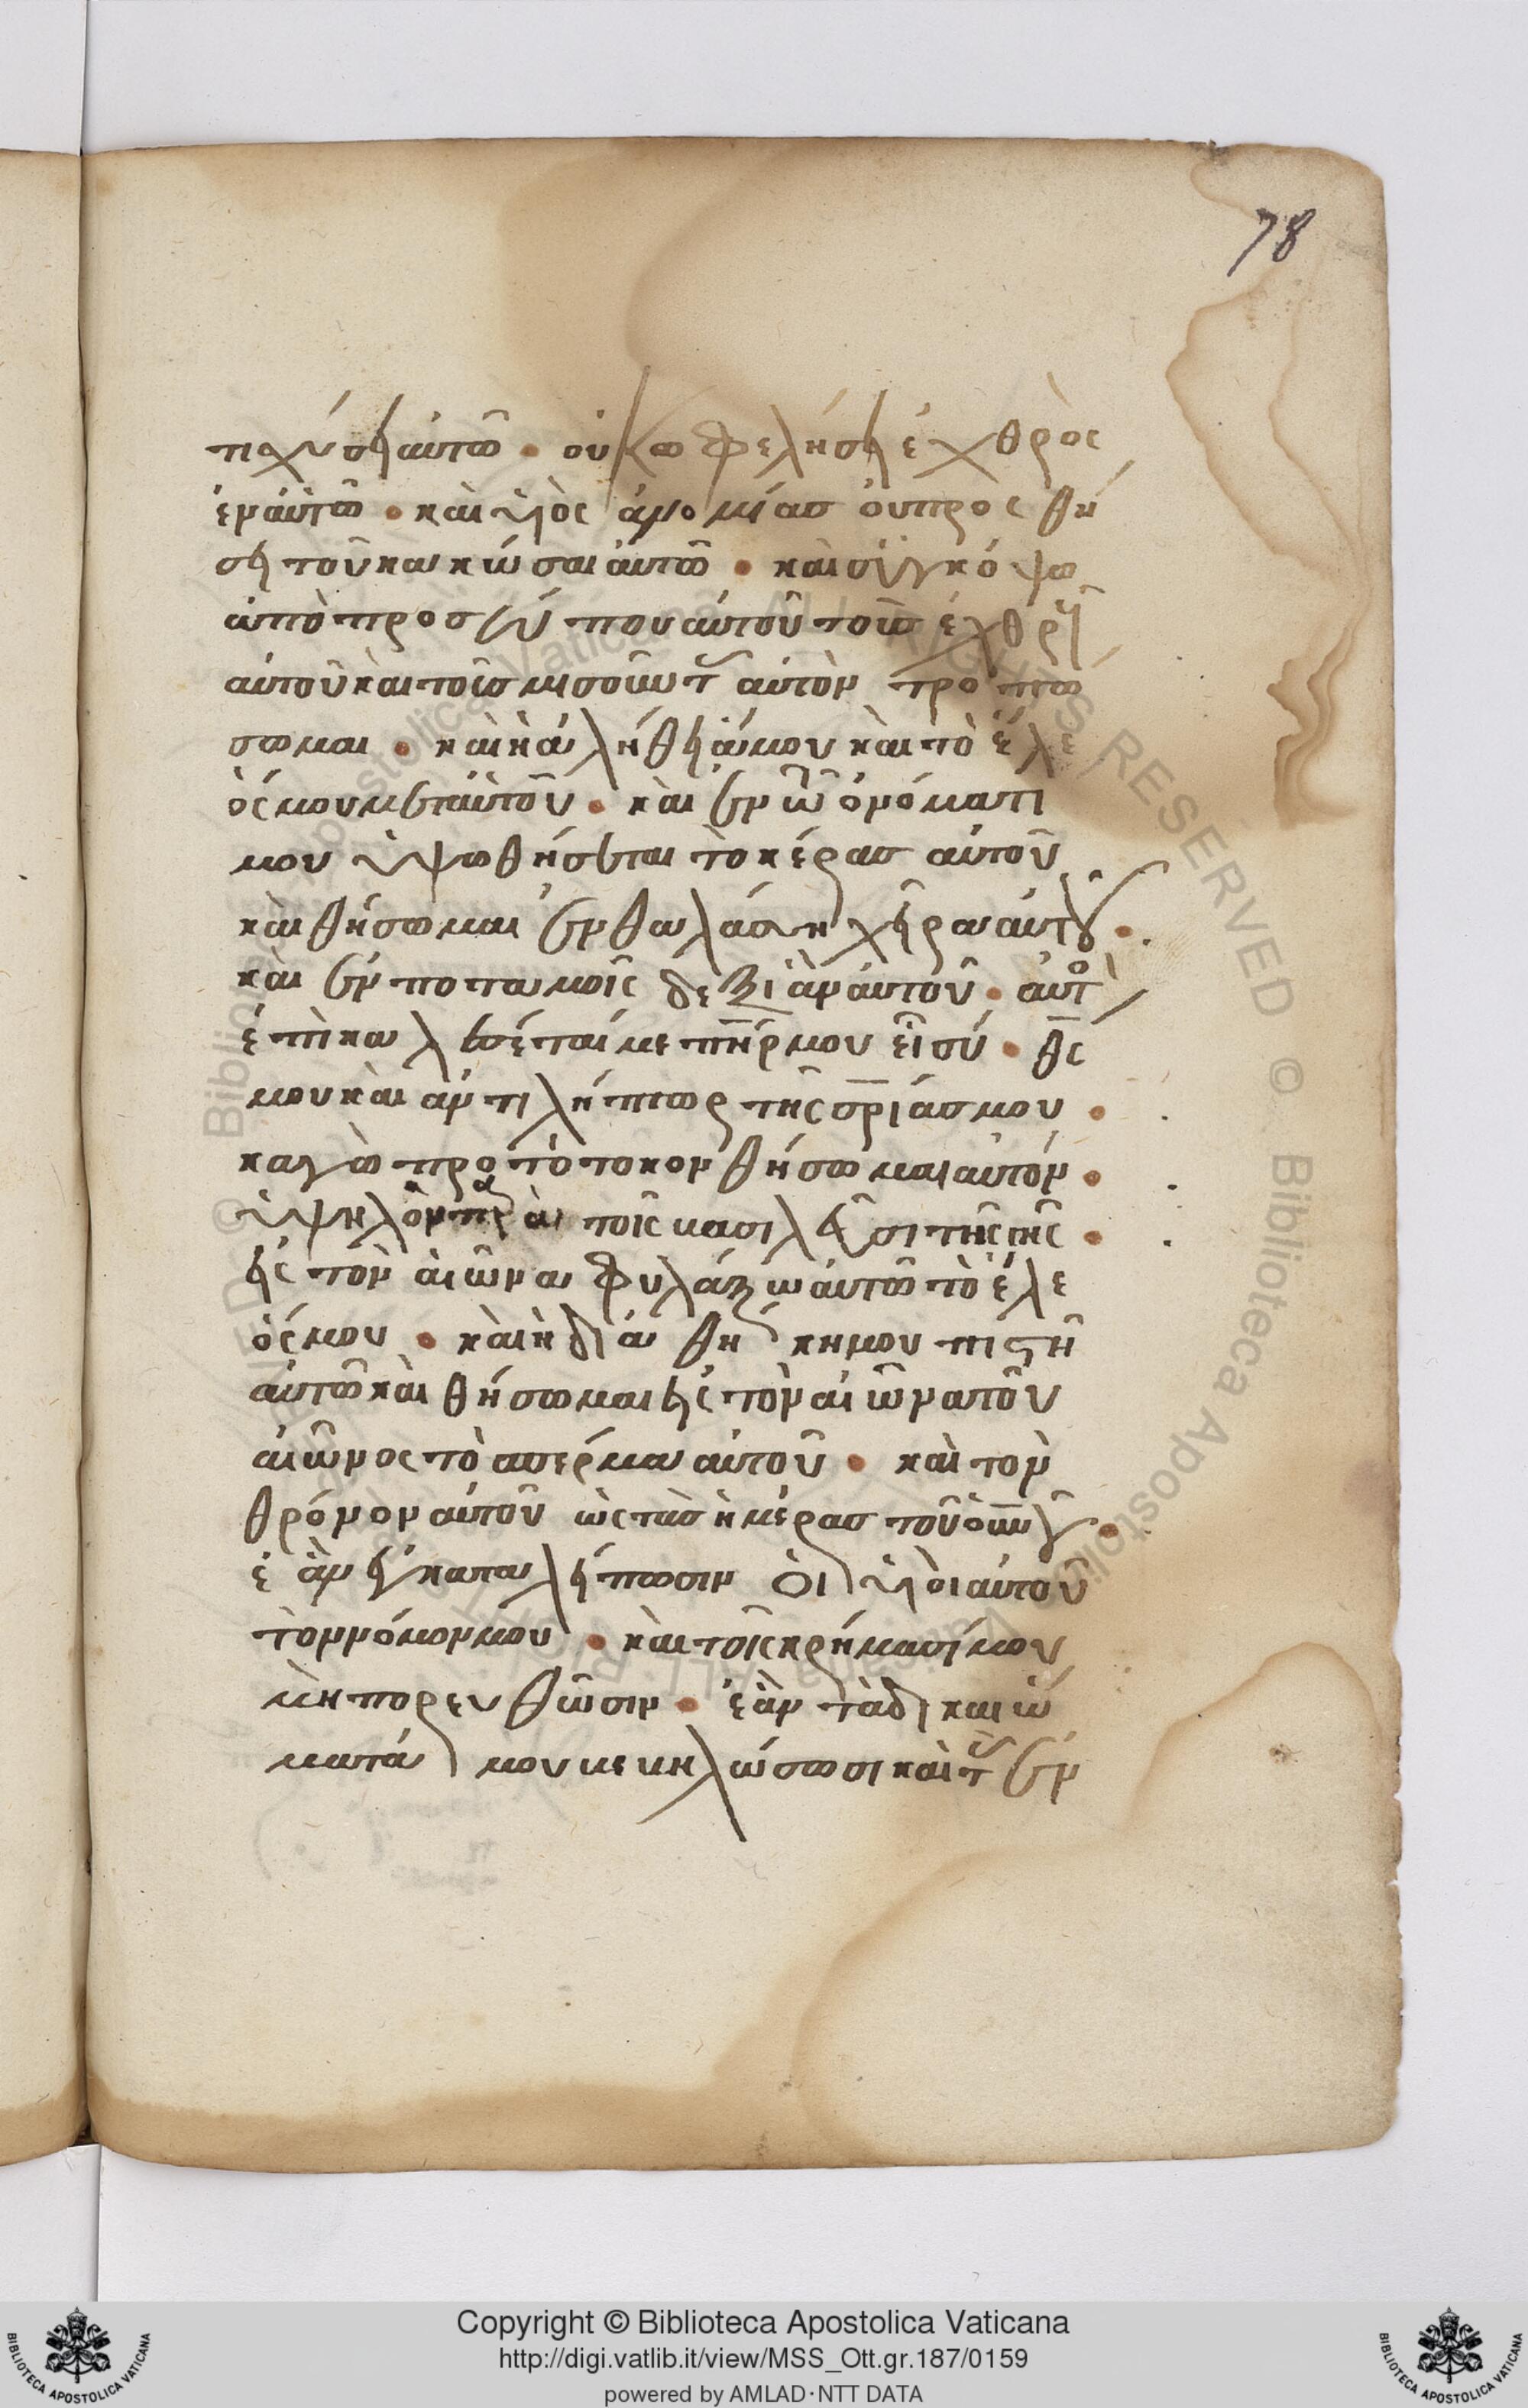 78
τιχύσει αυτῶ · οὐκ ωφελήσει ἐχθρὸς
ἐν αὐτῶ · καὶ ὑιὸς ἀνομίασ ὀυπροσθή
σει τοῦ κακώσαι ἀυτῶ · καὶ συγκόψω
ἀπὸ προσώπου αὐτοῦ τοῦσ ἐχθρ
αὐτοῦ καὶ τοῖσ μισοῦντ αὐτὸν τροπώ
σωμαι · καὶ ἡ ἀλήθειά μου καὶ τὸ ἔλε
ός μου μετ αὐτοῦ · καὶ ἐν τῶ ὀνόματι
μου ὑψωθήσεται τὸ κέρασ αὐτοῦ
καὶ θήσωμαι ἐν θαλάσση χεῖρα αὐτοῦ ·
καὶ ἐν ποταμοῖς δεξιὰν ἀυτοῦ · ἀυτὸ
ἐπικαλέσεταί με πηρ μου εἶ σύ · θς
μου καὶ ἀντιλήπτωρ τῆς σριάσ μου ·
καγὼ προτότοκον θήσωμαι αὐτόν ·
ὑψηλὸν παρὰ τοῖς βασιλεῦσι τῆς γῆς ·
εἰς τὸν ἀιῶνα φυλάξω ἀυτῶ τὸ ἔλε
ός μου · καὶ ἡ διάθήκη μου πιστὴ
αὐτῶ καὶ θήσωμαι εἰς τὸν αἰῶνα τοῦ
αἰῶνος τὸ σπέρμα αὐτοῦ · καὶ τὸν
θρόνον αὐτοῦ ὡς τὰσ ἡμέρασ τοῦ ὀυνοῦ ·
ἐὰν ἐγκαταλείπωσιν ὁι ὑιὸι αὐτοῦ
τὸν νόμον μου · καὶ τοῖς κρήμασί μου
μὴ πορευθῶσιν · ἐὰν τὰ δικαιώ
ματά μου βεβηλώσωσι καὶ τ ἐν
Copyright © Biblioteca Apostolica Vaticana
http://digi.vatlib.it/view/MSS_Ott.gr.187/0159
powered by AMLAD·NTT DATA